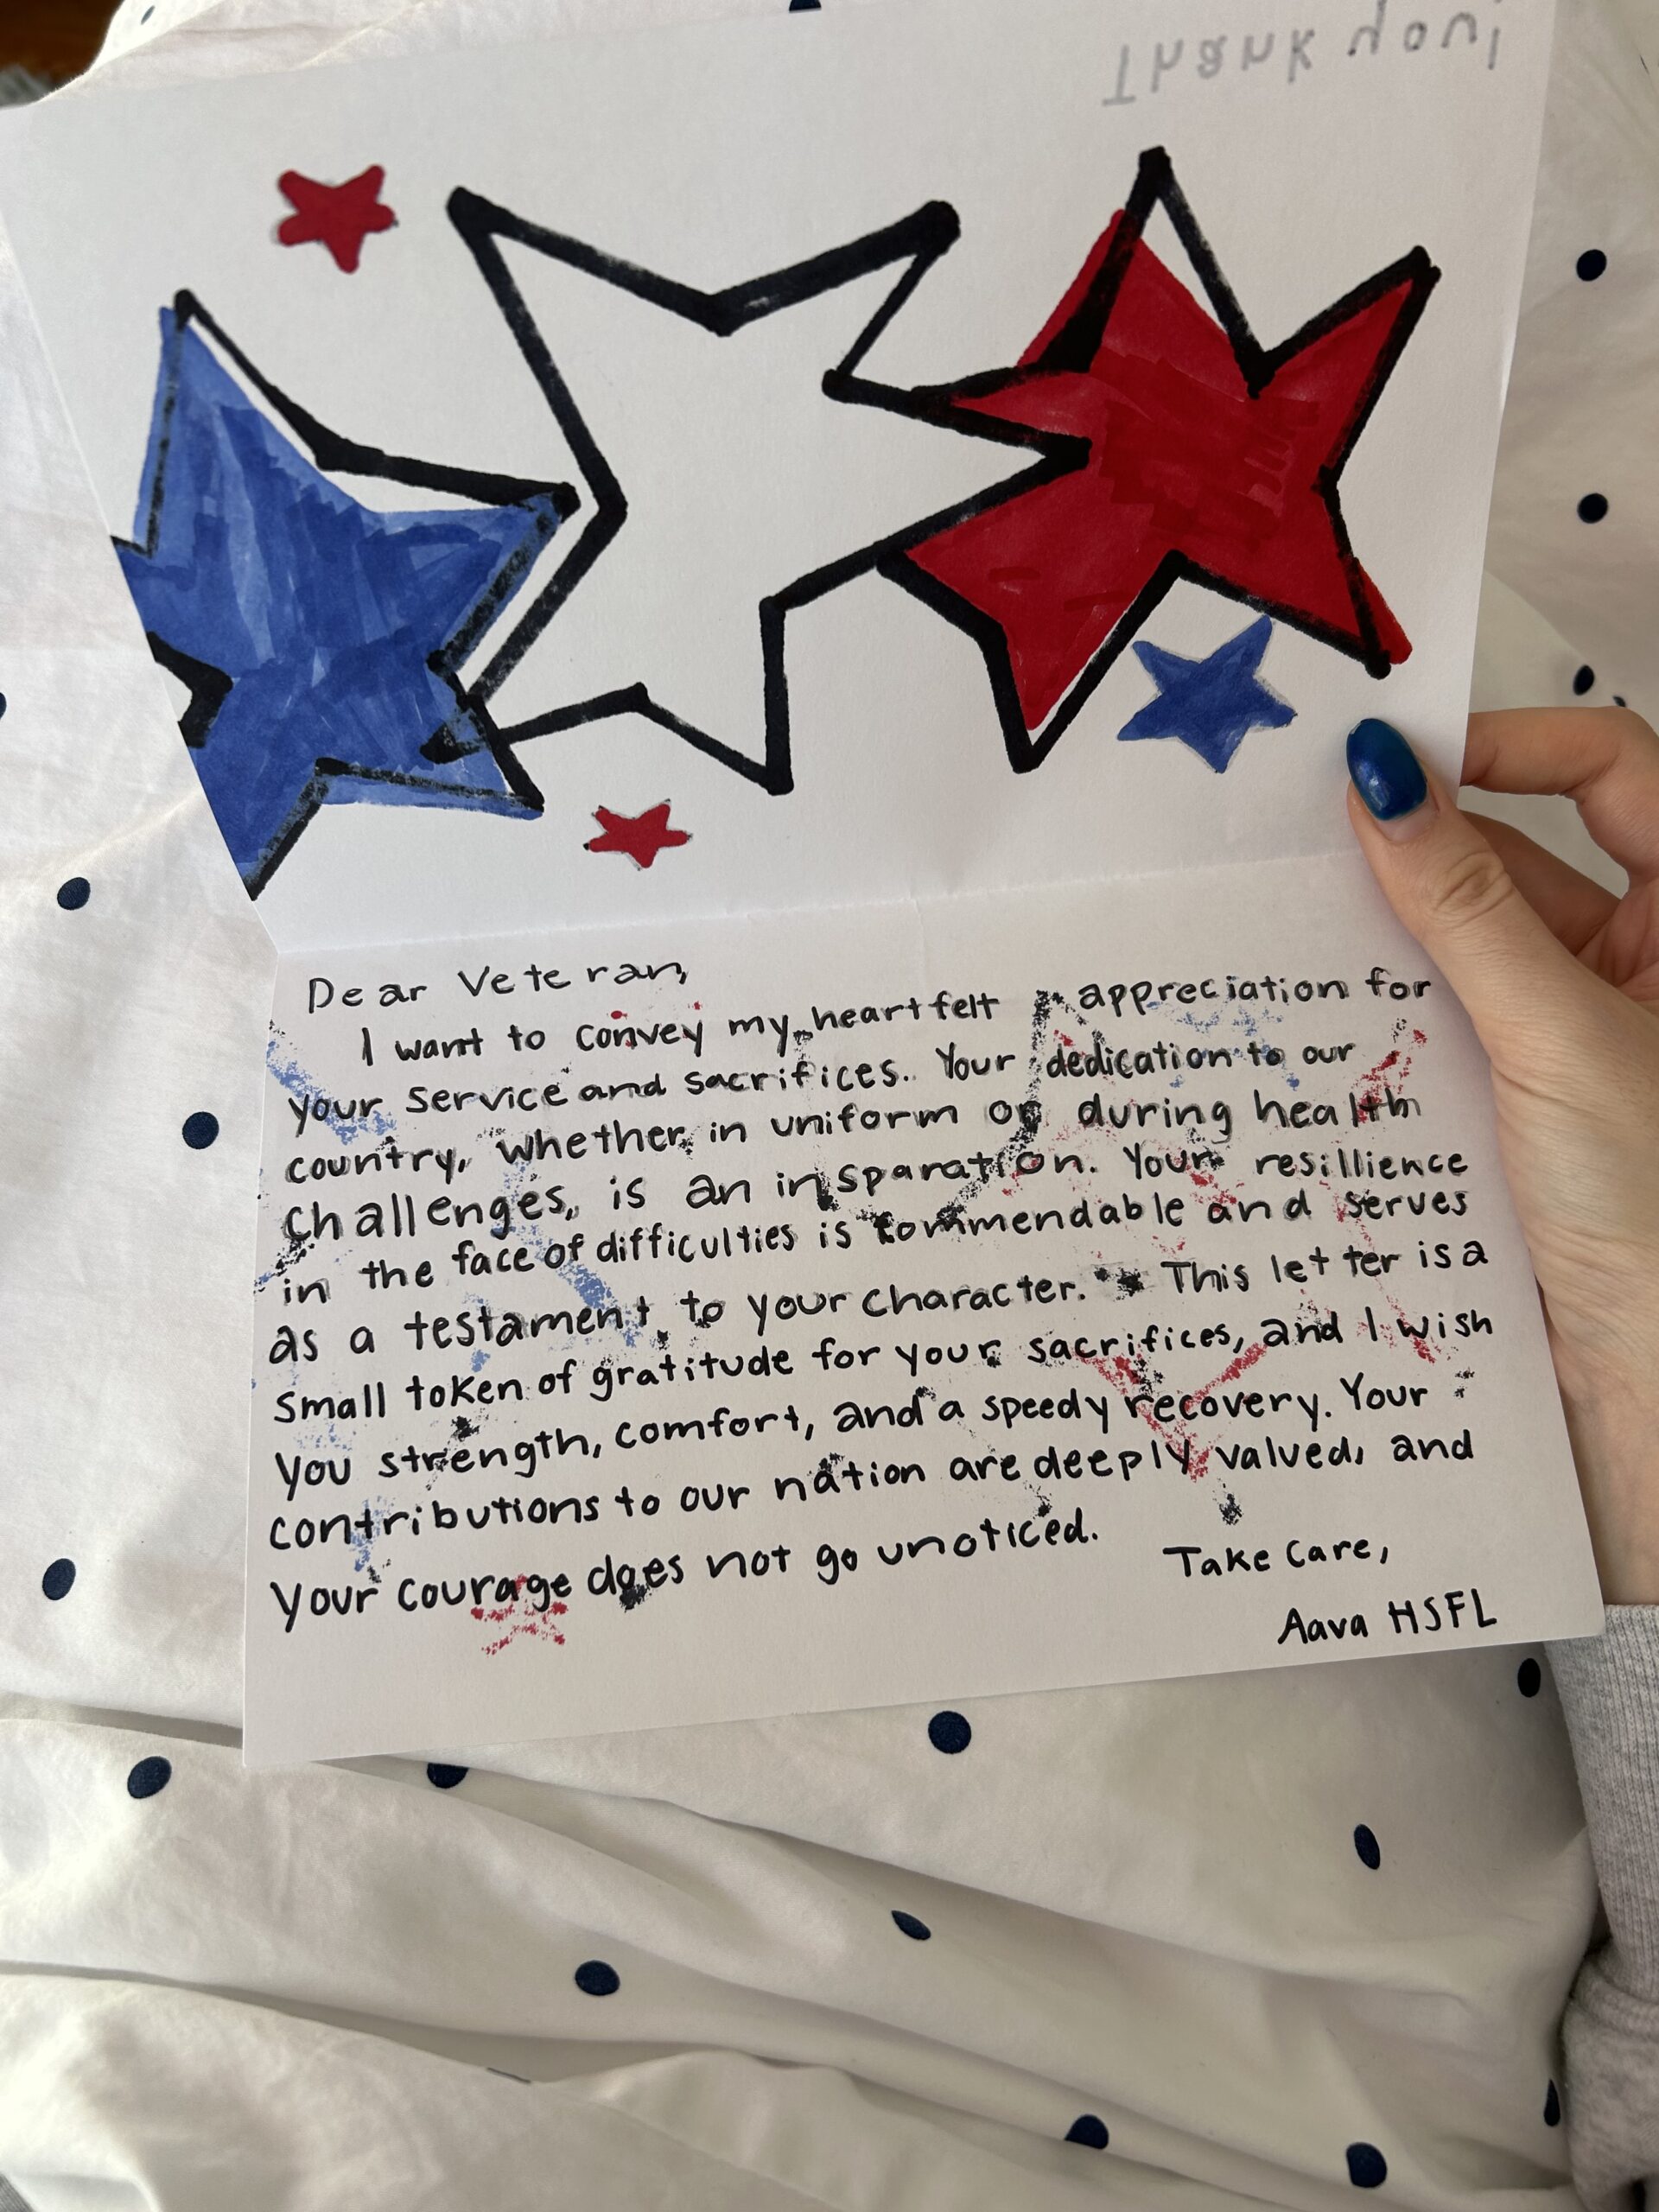 Thank you!
Dear Veteran,
I want to convey my heartfelt appreciation for
your service and sacrifices. Your dedication to our
country, whether in uniform or during health
challenges, is an insparation. Your resillience
in the face of difficulties is commendable and serves
as a testament to your character. This letter is a
small token of gratitude for your sacrifices, and I wish
you strength, comfort, and a speedy recovery. Your
contributions to our nation are deeply valued, and
your courage does not go unoticed.
Take Care,
Aava HSFL